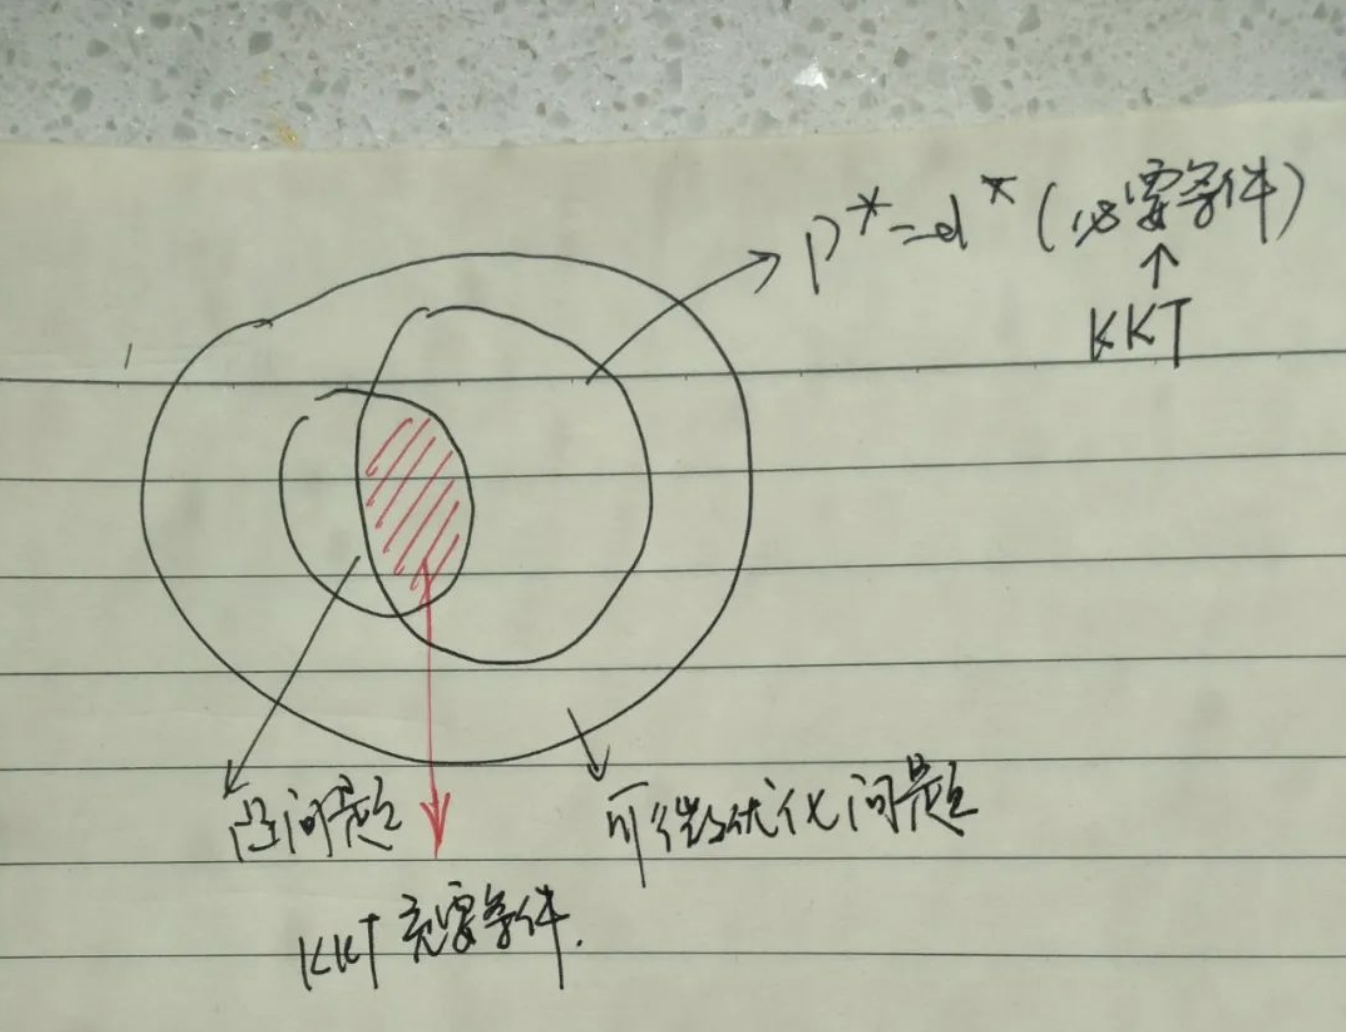 p*=d*(必要条件)
↑
KKT
凸问题
可微优化问题
KKT 充要条件.